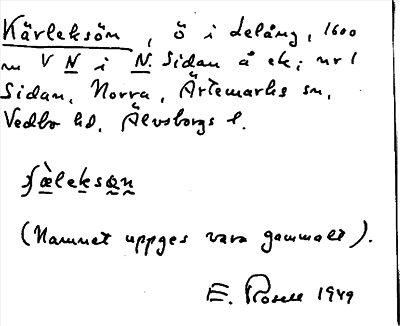 Kärleksön, ö i Lelång, 1600
m V N i N. Sidan å ek; nr 1
Sidan, Norra, Ärtemarks sn,
Vedbo hd, Älvsborgs l.
ʃæ̀leksøn
(Namnet uppges vara gammalt).
E. Rosell 1949